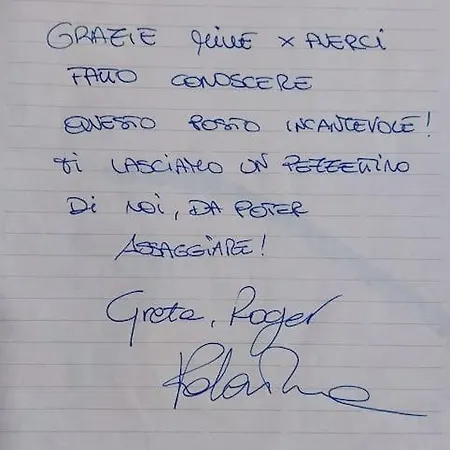 GRAZIE mille x AVERCI
FATTO CONOSCERE
QUESTO POSTO INCANTEVOLE!
ti LASCIAMO UN PEZZETTINO
Di NOI, DA POTER
ASSAGGIARE!
Greta, Roger